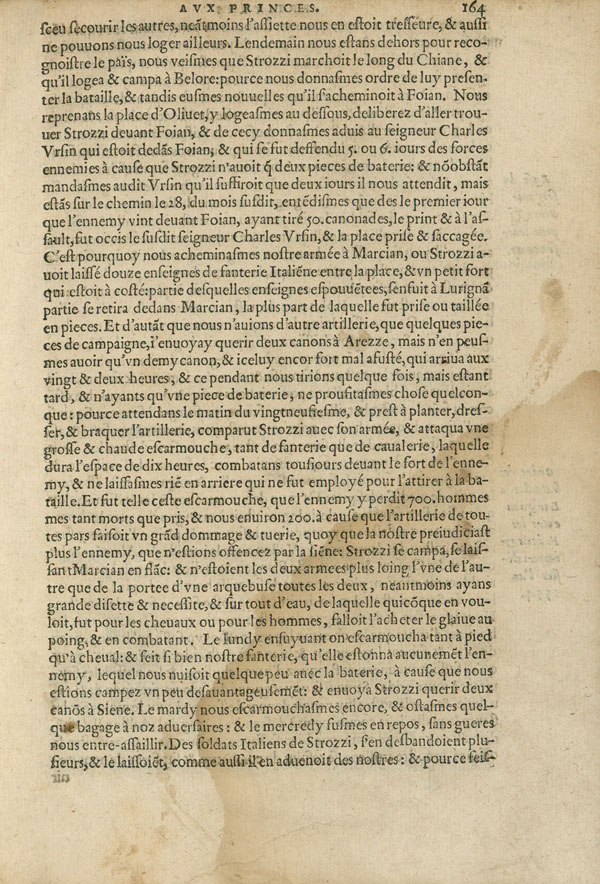 AVX PRINCES. 164
sceu secourir les autres, neātmoins l'assiette nous en estoit tresseure, & aussi
ne pouuons nous loger ailleurs. Lendemain nous estans dehors pour reco-
gnoistre le païs, nous veismes que Strozzi marchoit le long du Chiane, &
qu'il logea & campa à Belore: pource nous donnasmes ordre de luy presen-
ter la bataille, & tandis eusmes nouuelles qu'il s'acheminoit à Foian. Nous
reprenans la place d'Oliuet, y logeasmes au dessous, deliberez d'aller trou-
uer Strozzi deuant Foian, & de cecy donnasmes aduis au seigneur Charles
Vrsin qui estoit dedās Foian, & qui se fut deffendu 5. ou 6. iours des forces
ennemies à cause que Strozzi n'auoit q̄ deux pieces de baterie: & nōobstāt
mandasmes audit Vrsin qu'il suffiroit que deux iours il nous attendit, mais
estās sur le chemin le 28, du mois susdit, entēdismes que des le premier iour
que l'ennemy vint deuant Foian, ayant tiré 50. canonades, le print & à l'as-
sault, fut occis le susdit seigneur Charles Vrsin, & la place prise & saccagée.
C'est pourquoy nous acheminasmes nostre armée à Marcian, ou Strozzi a-
uoit laissé douze enseignes de fanterie Italiēne entre la place, & vn petit fort
qui estoit à costé: partie desquelles enseignes espouuētees, s'enfuit à Lurignā
partie se retira dedans Marcian, la plus part de laquelle fut prise ou taillée
en pieces. Et d'autāt que nous n'auions d'autre artillerie, que quelques pie-
ces de campaigne, i'enuoyay querir deux canons à Arezze, mais n'en peus-
mes auoir qu'vn demy canon, & iceluy encor fort mal afusté, qui arriua aux
vingt & deux heures, & ce pendant nous tirions quelque fois, mais estant
tard, & n'ayants qu'vne piece de baterie, ne proufitasmes chose quelcon-
que: pource attendans le matin du vingtneufiesme, & prest à planter, dres-
ser, & braquer l'artillerie, comparut Strozzi auec son armée, & attaqua vne
grosse & chaude escarmouche, tant de fanterie que de caualerie, laquelle
dura l'espace de dix heures, combatans tousiours deuant le fort de l'enne-
my, & ne laissasmes riē en arriere qui ne fut employé pour l'attirer à la ba-
taille. Et fut telle ceste escarmouche, que l'ennemy y perdit 700. hommes
mes tant morts que pris, & nous enuiron 200. à cause que l'artillerie de tou-
tes pars faisoit vn grād dommage & tuerie, quoy que la nostre preiudiciast
plus l'ennemy, que n'estions offencez par la siēne: Strozzi se campa, se lais-
sant Marcian en flāc: & n'estoient les deux armees plus loing l'vne de l'au-
tre que de la portee d'vne arquebuse toutes les deux, neantmoins ayans
grande disette & necessite, & sur tout d'eau, de laquelle quicōque en vou-
loit, fut pour les cheuaux ou pour les hommes, falloit l'acheter le glaiue au
poing, & en combatant. Le lundy ensuyuant on escarmoucha tant à pied
qu'à cheual: & feit si bien nostre fanterie, qu'elle estonna aucunemēt l'en-
nemy, lequel nous nuisoit quelque peu auec la baterie, à cause que nous
estions campez vn peu desauantageusemēt: & enuoya Strozzi querir deux
canōs à Siene. Le mardy nous escarmouchasmes encore, & ostasmes quel-
que bagage à noz aduersaires: & le mercredy fusmes en repos, sans gueres
nous entre-assaillir. Des soldats Italiens de Strozzi, s'en desbandoient plu-
sieurs, & le laissoiēt, comme aussi il en aduenoit des nostres: & pource feis-